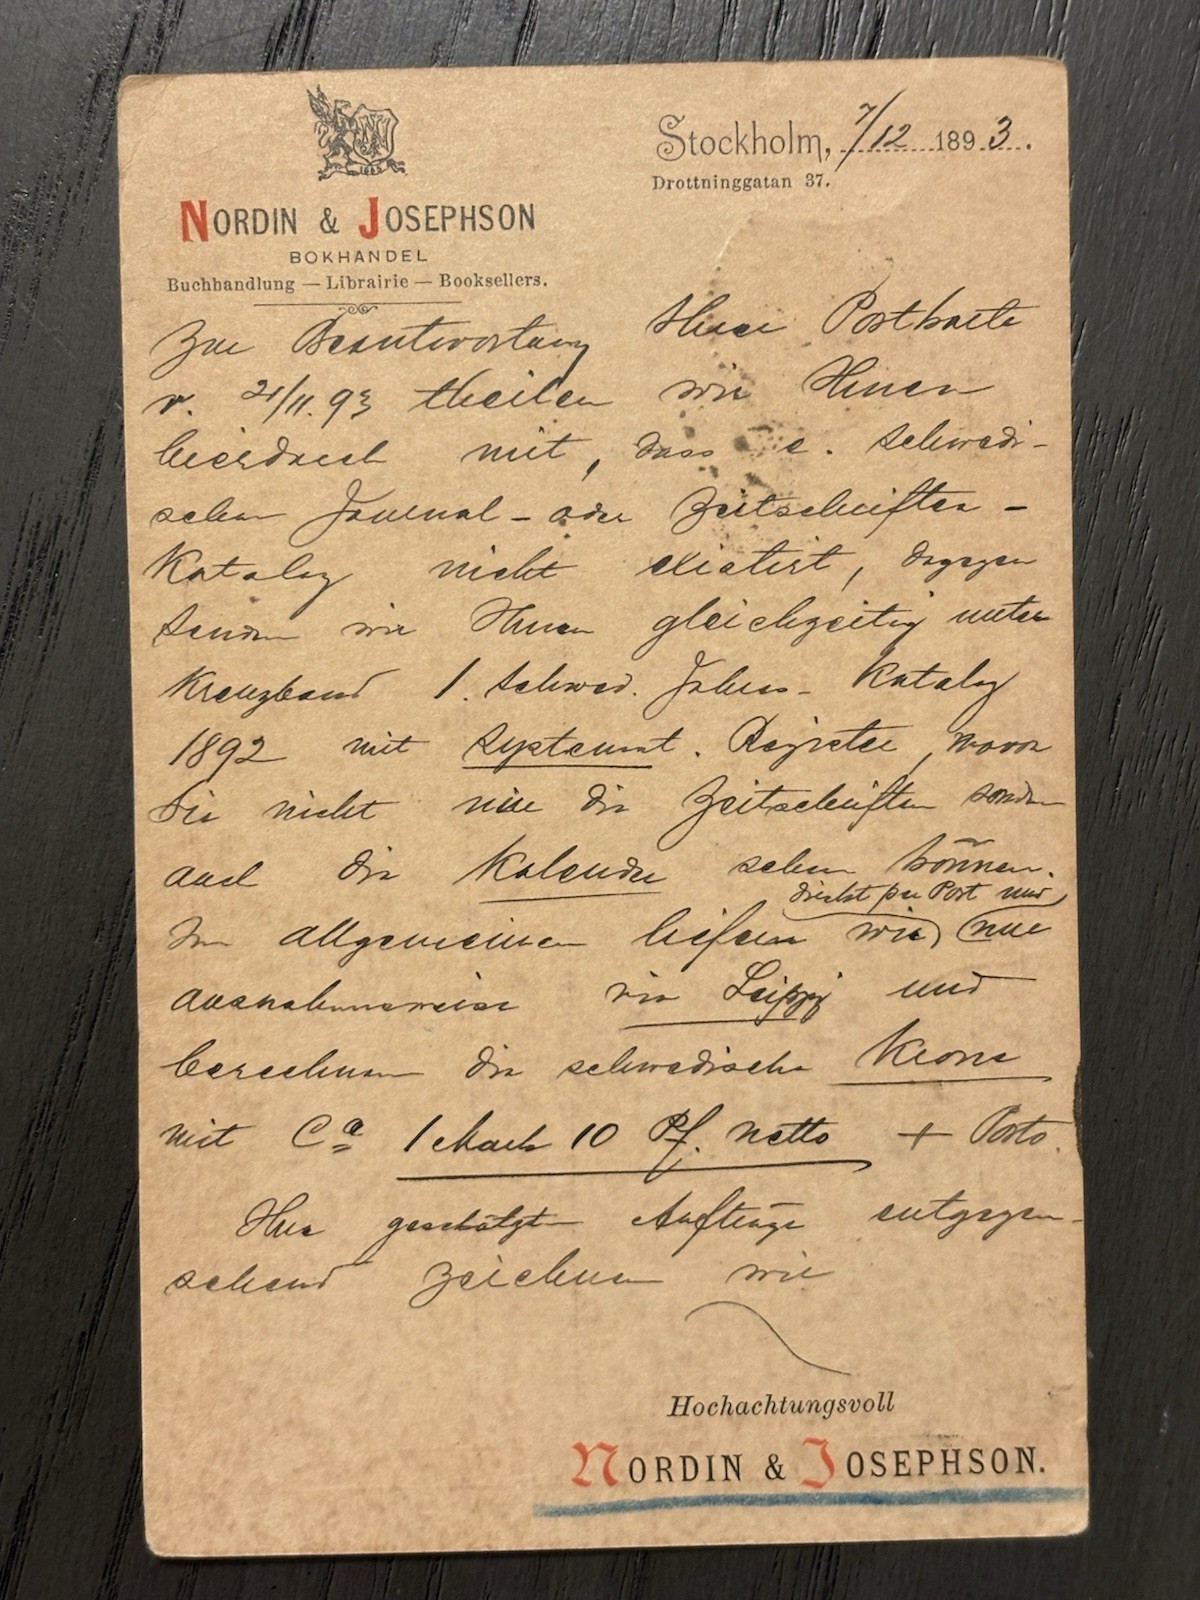 Stockholm, 7/12 1893.
Drottninggatan 37.
NORDIN & JOSEPHSON
BOKHANDEL
Buchhandlung — Librairie — Booksellers.
Zur Beantwortung Ihrer Postkarte
v. 21/11. 93 theilen wir Ihnen
hierdurch mit, dass e. schwedi-
schen Journal- oder Zeitschriften-
Katalog nicht existirt, dagegen
senden wir Ihnen gleichzeitig unter
Kreuzband 1. schwed. Jahres-Katalog
1892 mit systemat. Register, wovon
Sie nicht nur die Zeitschriften sondern
auch die Kalender sehen können.
direkt per Post und
Im allgemeinen liefern wir nur
ausnahmsweise via Leipzig und
berechnen die schwedische Krone
mit Ca 1 Mark 10 Pf. netto + Porto.
Ihre geschätzten Aufträge entgegen-
sehend zeichnen wir
Hochachtungsvoll
NORDIN & JOSEPHSON.